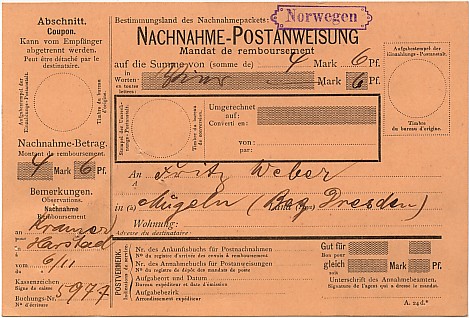 Abschnitt.
Coupon.
Kann vom Empfänger
abgetrennt werden.
Peut être détaché par le
destinataire.
Aufgabestempel der
Einzahlungs-Postanstalt.
Timbre du
bureau d'origine.
Nachnahme-Betrag.
Montant du remboursement.
4 Mark 6 Pf.
Bemerkungen.
Observations.
Nachnahme
Remboursement
an
Kramer
Harstad
vom
du
6/11
Kassenzeichen
Signe de caisse
Buchungs-Nr.
N° d'écriture
5977
Bestimmungsland des Nachnahmepackets:
Norwegen
NACHNAHME-POSTANWEISUNG
Mandat de remboursement
auf die Summe von (somme de) 4 Mark 6 Pf.
in
Worten
en toutes
lettres:
Mark 6 Pf.
Aufgabestempel der
Einzahlungs-Postanstalt.
Timbre
du bureau d'origine.
Stempel der Umrechnungs-Postanstalt.
Timbre du bureau
de conversion.
Umgerechnet auf:
Converti en:
von:
par:
An Fritz Weber
A
in (à) Mügeln (Bez Dresden)
Wohnung:
Adresse du destinataire:
POSTVERMERK.
Nr. des Ankunftsbuchs für Postnachnahmen
N° du registre d'arrivée des envois à remboursement
Nr. des Annahmebuchs für Postanweisungen
N° du registre de dépôt des mandats de poste
Aufgabeort und Datum
Bureau expéditeur et date d'émission
Aufgabebezirk
Arrondissement expéditeur
Gut für
Bon pour
gleich Mark Pf.
soit
Unterschrift des Annahmebeamten.
Signature de l'agent qui a dressé le mandat.
A. 24 d.*